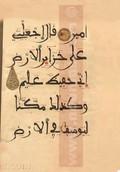 امين قال اجعلني
على خزاين الارض
اني حفيظ عليم
وكذلك مكنا
ليوسف في الارض